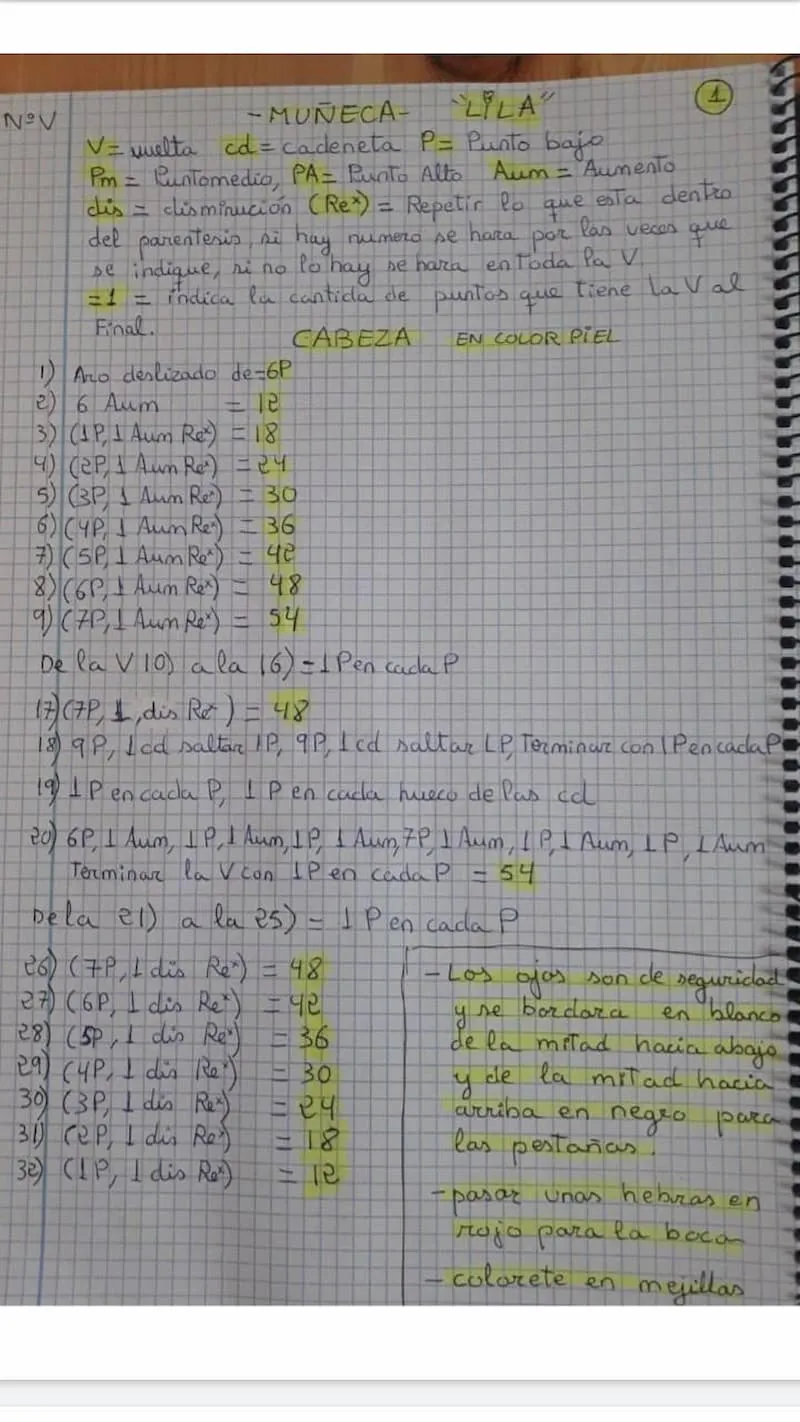 NºV
- MUÑECA - "LILA" 1
V= vuelta cd = cadeneta P= Punto bajo
Pm = Puntomedio, PA= Punto Alto Aum = Aumento
dis = disminución (Reˣ) = Repetir lo que esta dentro
del parentesis, si hay numero se hara por las veces que
se indique, si no lo hay se hara en toda la V.
=1 = indica la cantida de puntos que tiene la V al
Final.
CABEZA EN COLOR PIEL
1) Aro deslizado de=6P
2) 6 Aum = 12
3) (1P, 1 Aum Reˣ) = 18
4) (2P, 1 Aum Reˣ) = 24
5) (3P, 1 Aum Reˣ) = 30
6) (4P, 1 Aum Reˣ) = 36
7) (5P, 1 Aum Reˣ) = 42
8) (6P, 1 Aum Reˣ) = 48
9) (7P, 1 Aum Reˣ) = 54
De la V 10) a la 16) = 1 P en cada P
17) (7P, 1, dis Reˣ) = 48
18) 9P, 1cd saltar 1P, 9P, 1cd saltar 1P, Terminar con 1P en cada P
19) 1 P en cada P, 1 P en cada hueco de las cd
20) 6P, 1 Aum, 1P, 1 Aum, 1P, 1 Aum, 7P, 1 Aum, 1P, 1 Aum, 1P, 1 Aum
Terminar la V con 1P en cada P = 54
De la 21) a la 25) = 1 P en cada P
26) (7P, 1 dis Reˣ) = 48
27) (6P, 1 dis Reˣ) = 42
28) (5P, 1 dis Reˣ) = 36
29) (4P, 1 dis Reˣ) = 30
30) (3P, 1 dis Reˣ) = 24
31) (2P, 1 dis Reˣ) = 18
32) (1P, 1 dis Reˣ) = 12
- Los ojos son de seguridad
y se bordara en blanco
de la mitad hacia abajo
y de la mitad hacia
arriba en negro para
las pestañas.
- pasar unas hebras en
rojo para la boca
- colorete en mejillas